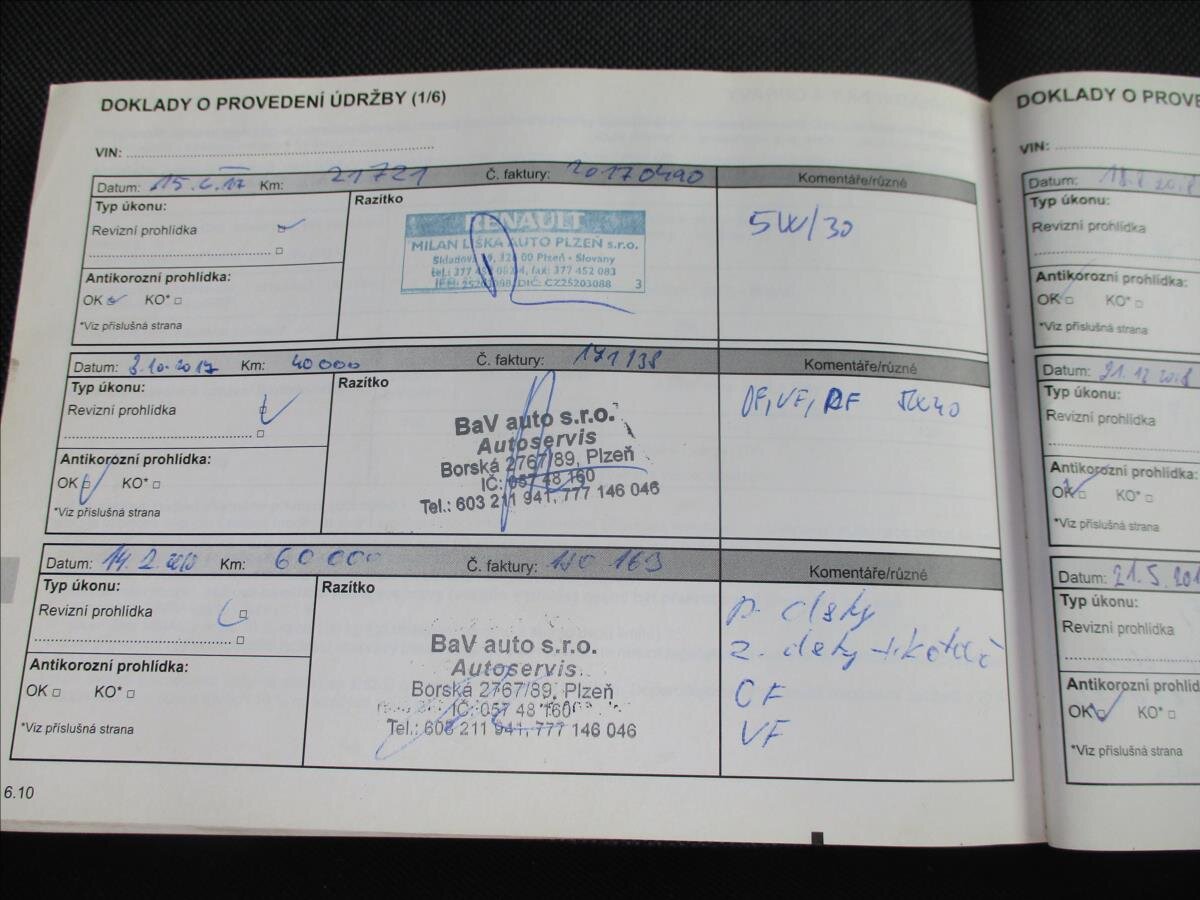 DOKLADY O PROVEDENÍ ÚDRŽBY (1/6)
VIN:
Datum: 15.6.17 Km: 21721 Č. faktury: 20170490 Komentáře/různé
Typ úkonu:
Revizní prohlídka
Antikorozní prohlídka:
OK KO*
*Viz příslušná strana
Razítko
RENAULT
MILAN LIŠKA AUTO PLZEŇ s.r.o.
Skladová 19, 326 00 Plzeň - Slovany
tel.: 377 452 083, fax: 377 452 083
IČO: 25203088, DIČ: CZ25203088 3
5W/30
Datum: 3.10.2017 Km: 40000 Č. faktury: 171138 Komentáře/různé
Typ úkonu:
Revizní prohlídka
Antikorozní prohlídka:
OK KO*
*Viz příslušná strana
Razítko
BaV auto s.r.o.
Autoservis
Borská 2767/89, Plzeň
IČ: 057 48 160
Tel.: 603 211 941, 777 146 046
OF, VF, PF 5W40
Datum: 14.2. Km: 60000 Č. faktury: 163 Komentáře/různé
Typ úkonu:
Revizní prohlídka
Antikorozní prohlídka:
OK KO*
*Viz příslušná strana
Razítko
BaV auto s.r.o.
Autoservis
Borská 2767/89, Plzeň
IČ: 057 48 160
Tel.: 603 211 941, 777 146 046
p. desky
z. desky +
VF
6.10
DOKLADY O PROVE
VIN:
Datum: 18.8 2018
Typ úkonu:
Revizní prohlídka
Antikorozní prohlídka:
OK KO*
*Viz příslušná strana
Datum: 21.12 2018
Typ úkonu:
Revizní prohlídka
Antikorozní prohlídka:
OK KO*
*Viz příslušná strana
Datum: 21.5.201
Typ úkonu:
Revizní prohlídka
Antikorozní prohlíd
OK KO*
*Viz příslušná strana